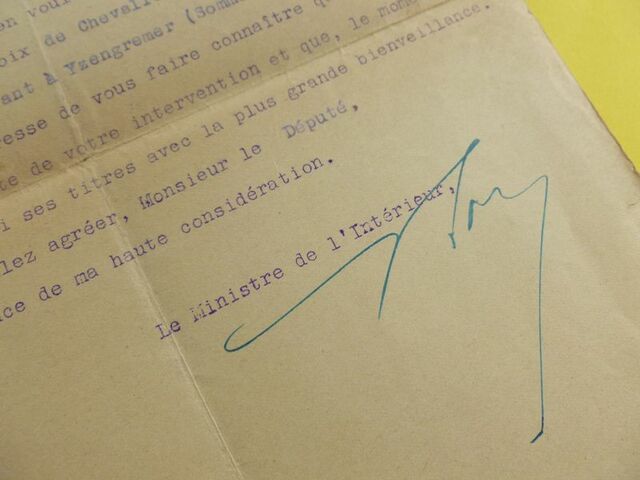 en vou
oix de Chevali
ant à Yzengremer (Somm
resse de vous faire connaître q
te de votre intervention et que, le mome
i ses titres avec la plus grande bienveillance.
lez agréer, Monsieur le Député,
nce de ma haute considération.
Le Ministre de l'Intérieur,